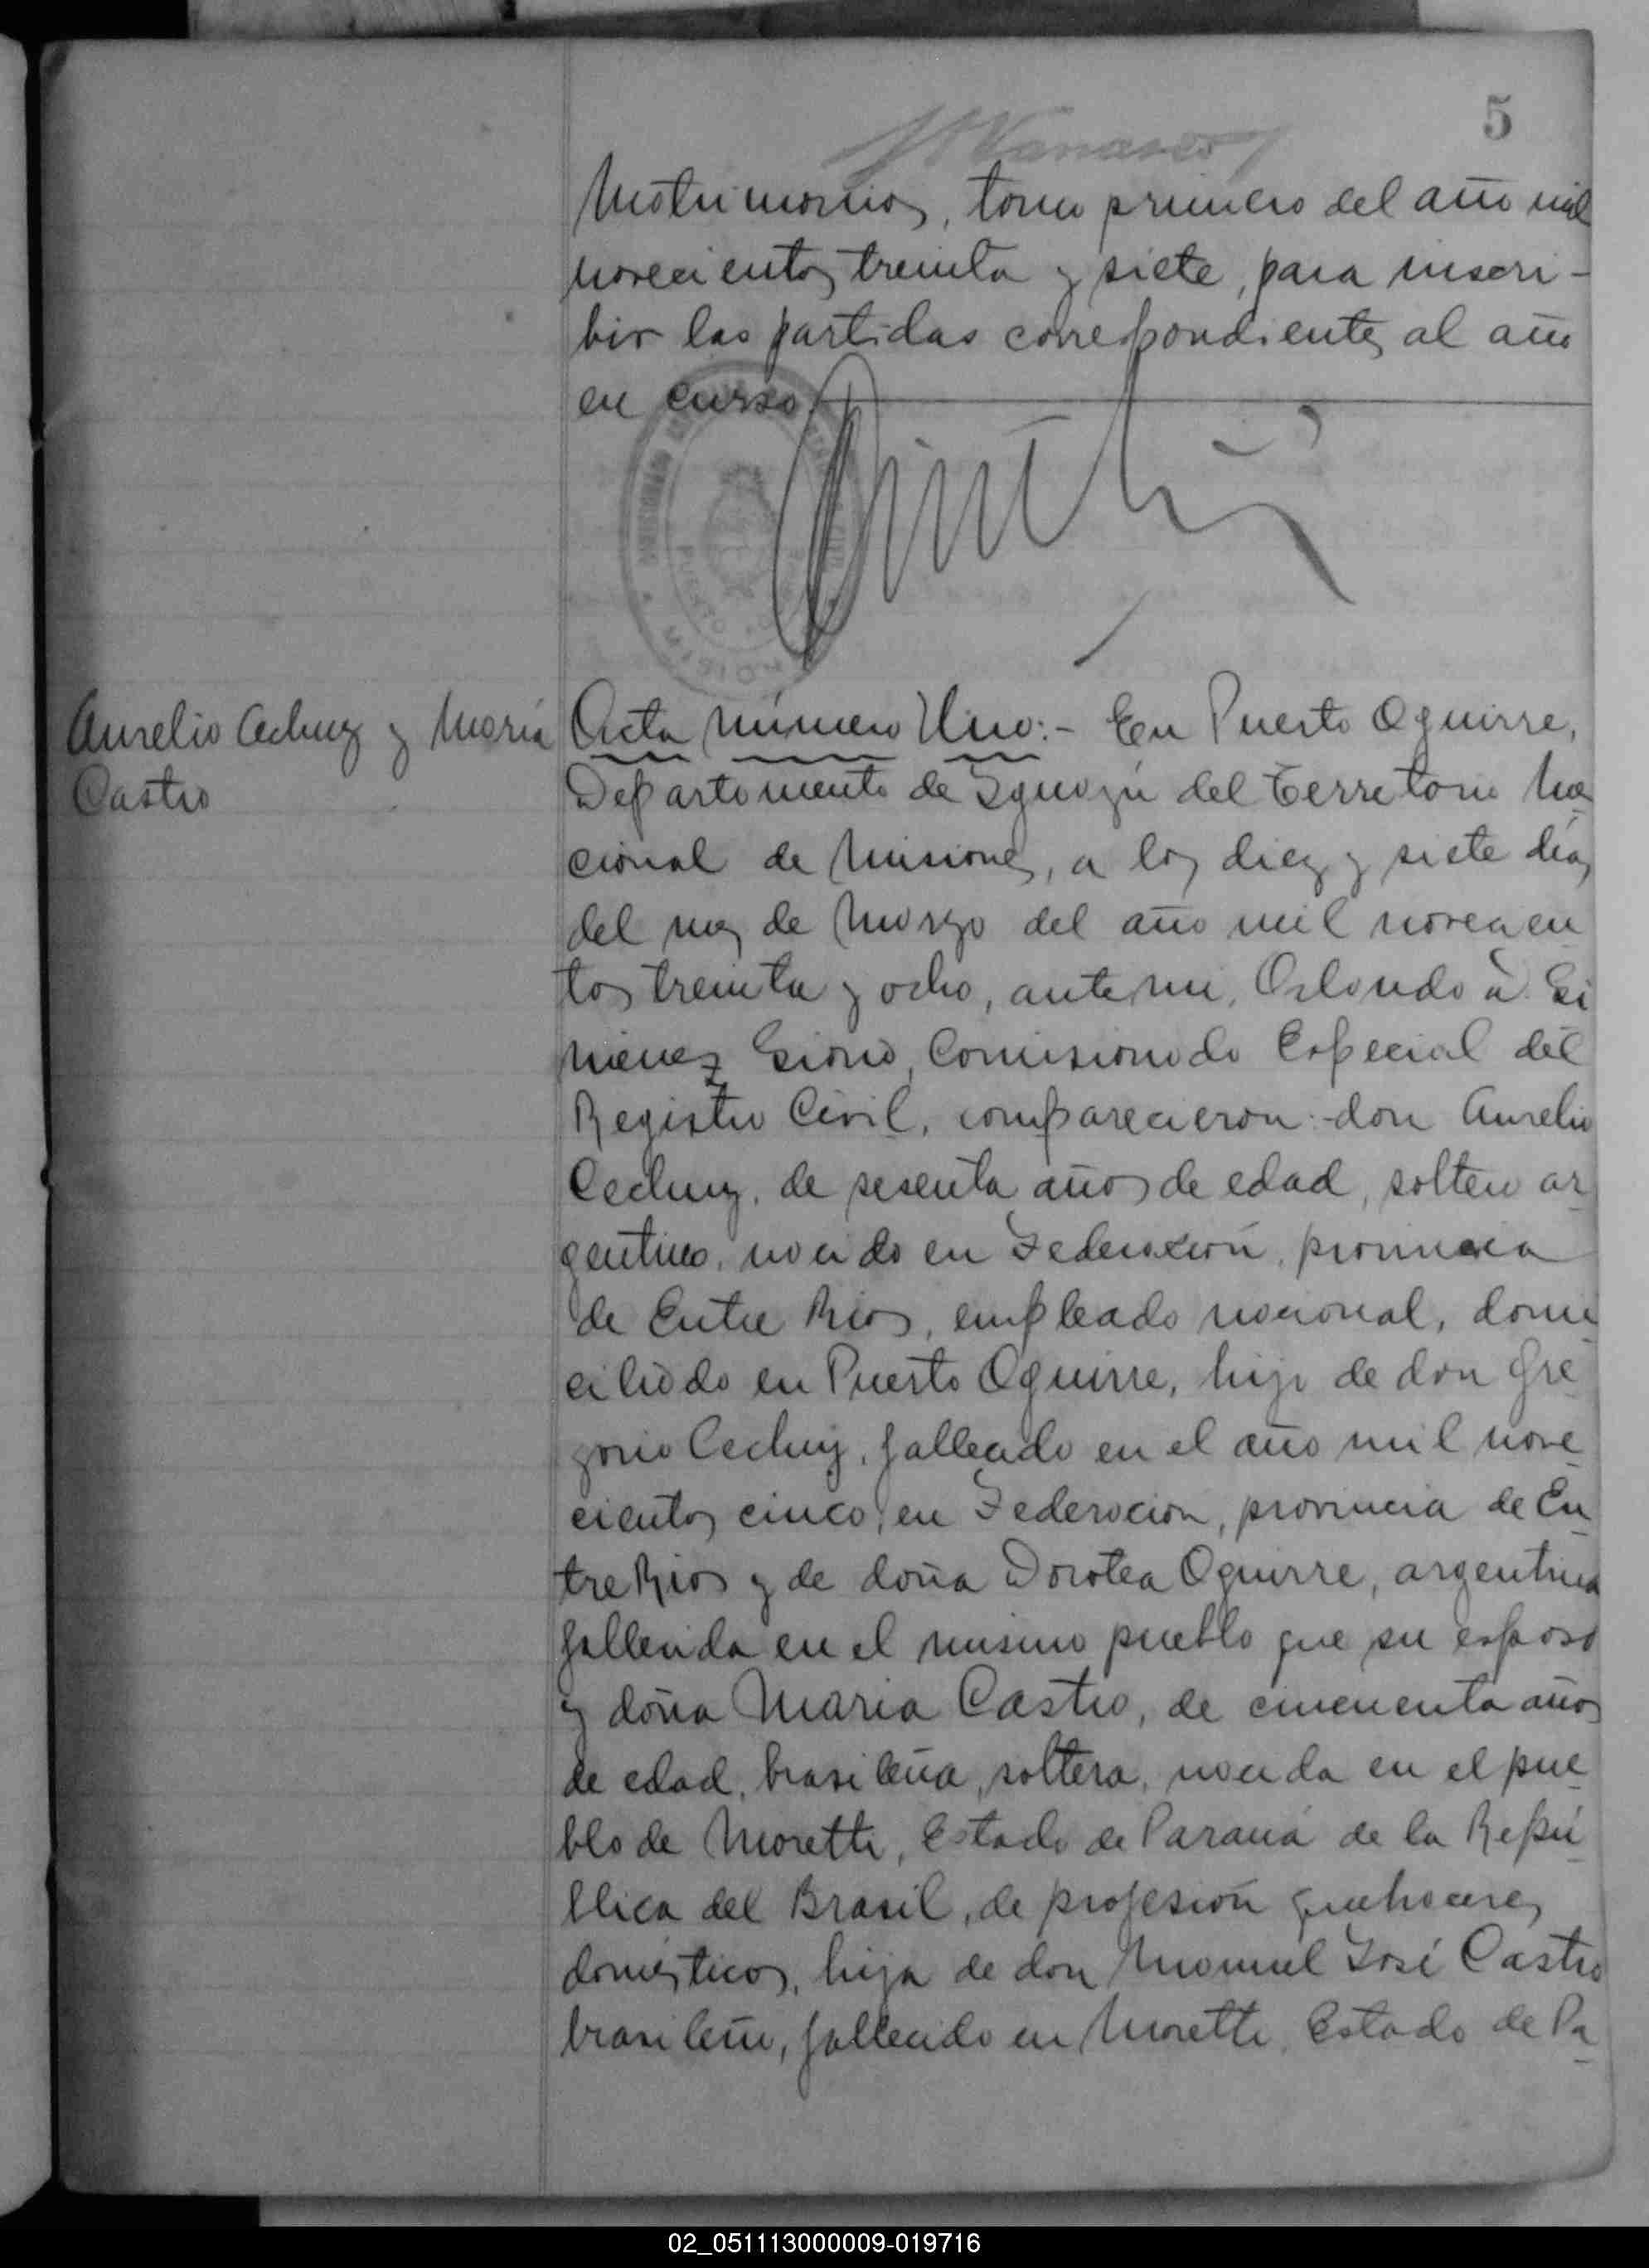 5
Matrimonios, tomo primero del año mil
novecientos treinta y siete, para inscri-
bir las partidas correspondientes al año
en curso
Aurelio Cechuz y María
Castro
Acta número Uno:- En Puerto Aguirre,
Departamento de Iguazú del Territorio Na
cional de Misiones, a los diez y siete días
del mes de Marzo del año mil novecien
tos treinta y ocho, ante mi, Orlando A. Gi
menez Giorio, Comisionado Especial del
Registro Civil, comparecieron:-don Aurelio
Cechuz, de sesenta años de edad, soltero ar
gentino, nacido en Federación, provincia
de Entre Rios, empleado nacional, domi
ciliado en Puerto Aguirre, hijo de don Gre
gorio Cechuz, fallecido en el año mil nove
cientos cinco, en Federación, provincia de En
tre Rios y de doña Dorotea Aguirre, argentina
fallecida en el mismo pueblo que su esposo
y doña Maria Castro, de cincuenta años
de edad, brasileña, soltera, nacida en el pue
blo de Morette, Estado de Paraná de la Repú
blica del Brasil, de profesión quehaceres
domésticos, hija de don Manuel José Castro
brasileño, fallecido en Morette, Estado de Pa
02_051113000009-019716